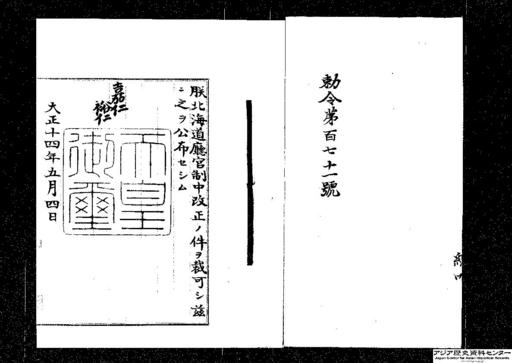 勅令第百七十一號
朕北海道廳官制中改正ノ件ヲ裁可シ玆
ニ之ヲ公布セシム
嘉仁
裕仁
天皇
御璽
大正十四年五月四日
アジア歴史資料センター
Japan Center for Asian Historical Records